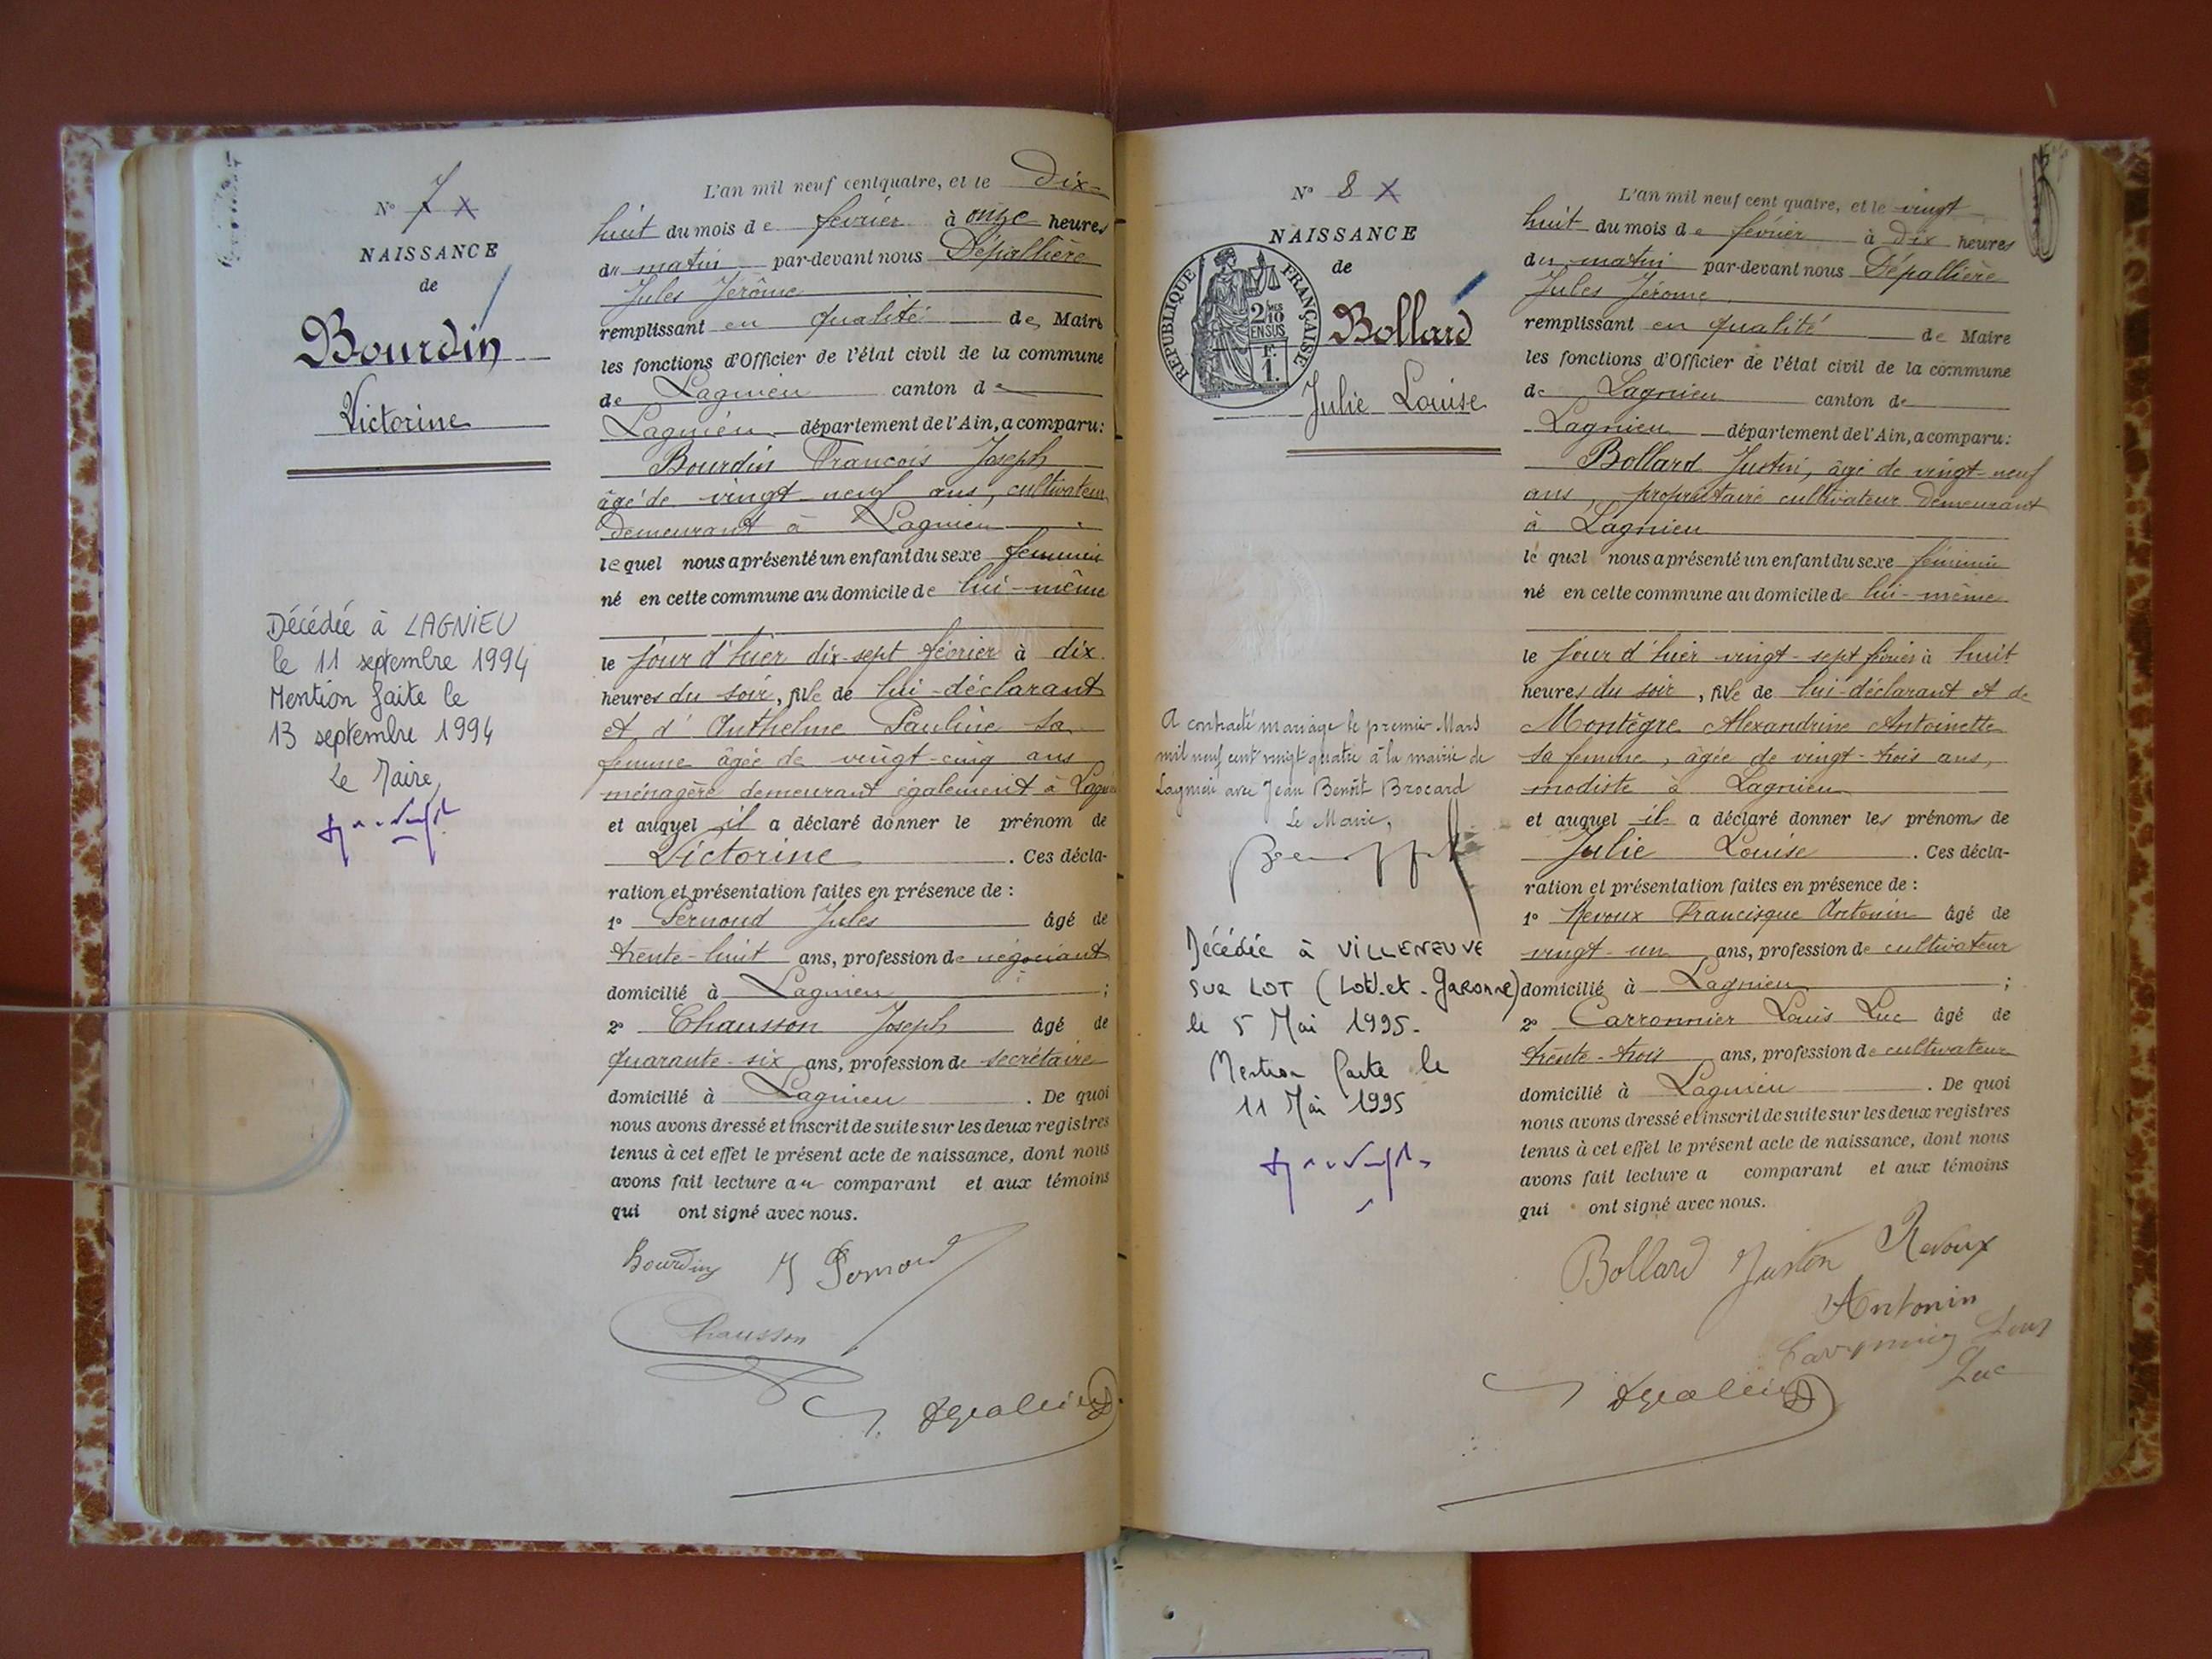 N° 7 X
NAISSANCE
de
Bourdin
Victorine
Décédée à LAGNIEU
le 11 septembre 1994
Mention faite le
13 septembre 1994
Le Maire,
L'an mil neuf cent quatre, et le Dix-
huit du mois de février à onze heures
du matin par-devant nous Dépallière
Jules Jérôme
remplissant en qualité de Maire
les fonctions d'Officier de l'état civil de la commune
de Lagnieu canton de
Lagnieu département de l'Ain, a comparu:
Bourdin François Joseph
âgé de vingt-neuf ans, cultivateur
demeurant à Lagnieu
lequel nous a présenté un enfant du sexe féminin
né en cette commune au domicile de lui-même
le jour d'hier dix-sept février à dix
heures du soir, fille de lui-déclarant
et d'Anthelme Pauline sa
femme âgée de vingt-cinq ans
ménagère demeurant également à Lagnieu
et auquel il a déclaré donner le prénom de
Victorine. Ces décla-
ration et présentation faites en présence de :
1° Pernoud Jules âgé de
trente-huit ans, profession de négociant
domicilié à Lagnieu ;
2° Chausson Joseph âgé de
quarante-six ans, profession de secrétaire
domicilié à Lagnieu. De quoi
nous avons dressé et inscrit de suite sur les deux registres
tenus à cet effet le présent acte de naissance, dont nous
avons fait lecture au comparant et aux témoins
qui ont signé avec nous.
Bourdin J Pernoud
Chausson
N° 8 X
NAISSANCE
de
REPUBLIQUE FRANÇAISE
2 MES
10
EN SUS
F.
1.
Bollard
Julie Louise
A contracté mariage le premier Mars
mil neuf cent vingt quatre à la mairie de
Lagnieu avec Jean Benoît Brocard
Le Maire,
Décédée à VILLENEUVE
SUR LOT (Lot-et-Garonne)
le 5 Mai 1995.
Mention faite le
11 Mai 1995
L'an mil neuf cent quatre, et le vingt
huit du mois de février à dix heures
du matin par-devant nous Dépallière
Jules Jérome
remplissant en qualité de Maire
les fonctions d'Officier de l'état civil de la commune
de Lagnieu canton de
Lagnieu département de l'Ain, a comparu:
Bollard Justin, âgé de vingt-neuf
ans, propriétaire cultivateur demeurant
à Lagnieu
lequel nous a présenté un enfant du sexe féminin
né en cette commune au domicile de lui-même
le jour d'hier vingt-sept février à huit
heures du soir, fille de lui-déclarant et de
Montègre Alexandrine Antoinette
sa femme, âgée de vingt-trois ans,
modiste à Lagnieu
et auquel il a déclaré donner les prénoms de
Julie Louise. Ces décla-
ration et présentation faites en présence de :
1° Revoux Francisque Antonin âgé de
vingt-un ans, profession de cultivateur
domicilié à Lagnieu ;
2° Carronnier Louis Luc âgé de
trente-trois ans, profession de cultivateur
domicilié à Lagnieu. De quoi
nous avons dressé et inscrit de suite sur les deux registres
tenus à cet effet le présent acte de naissance, dont nous
avons fait lecture a comparant et aux témoins
qui ont signé avec nous.
Bollard Justin Revoux
Antonin
Luc